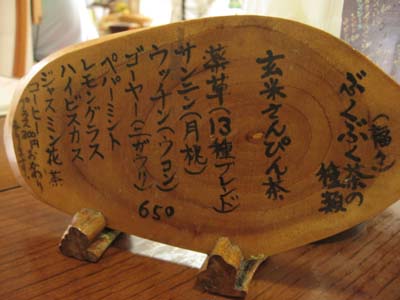 (福々)
ぶくぶく茶の
種類
玄米さんぴん茶
薬草(13種ブレンド)
サンニン(月桃)
ウッチン(ウコン)
ゴーヤー(ニガウリ)
650
ペパーミント
レモングラス
ハイビスカス
ジャスミン花茶
コーヒー
おかわり